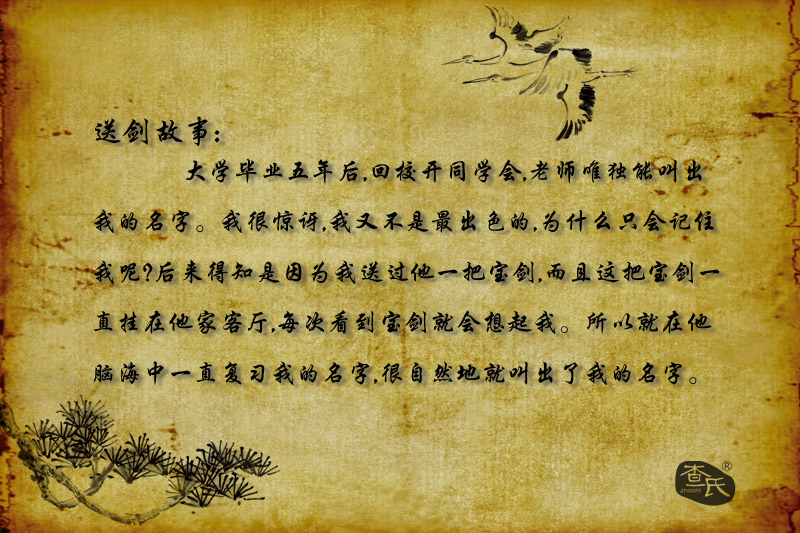 送剑故事:
大学毕业五年后,回校开同学会,老师唯独能叫出
我的名字。我很惊讶,我又不是最出色的,为什么只会记住
我呢?后来得知是因为我送过他一把宝剑,而且这把宝剑一
直挂在他家客厅,每次看到宝剑就会想起我。所以就在他
脑海中一直复习我的名字,很自然地就叫出了我的名字。
查氏®
zhashi